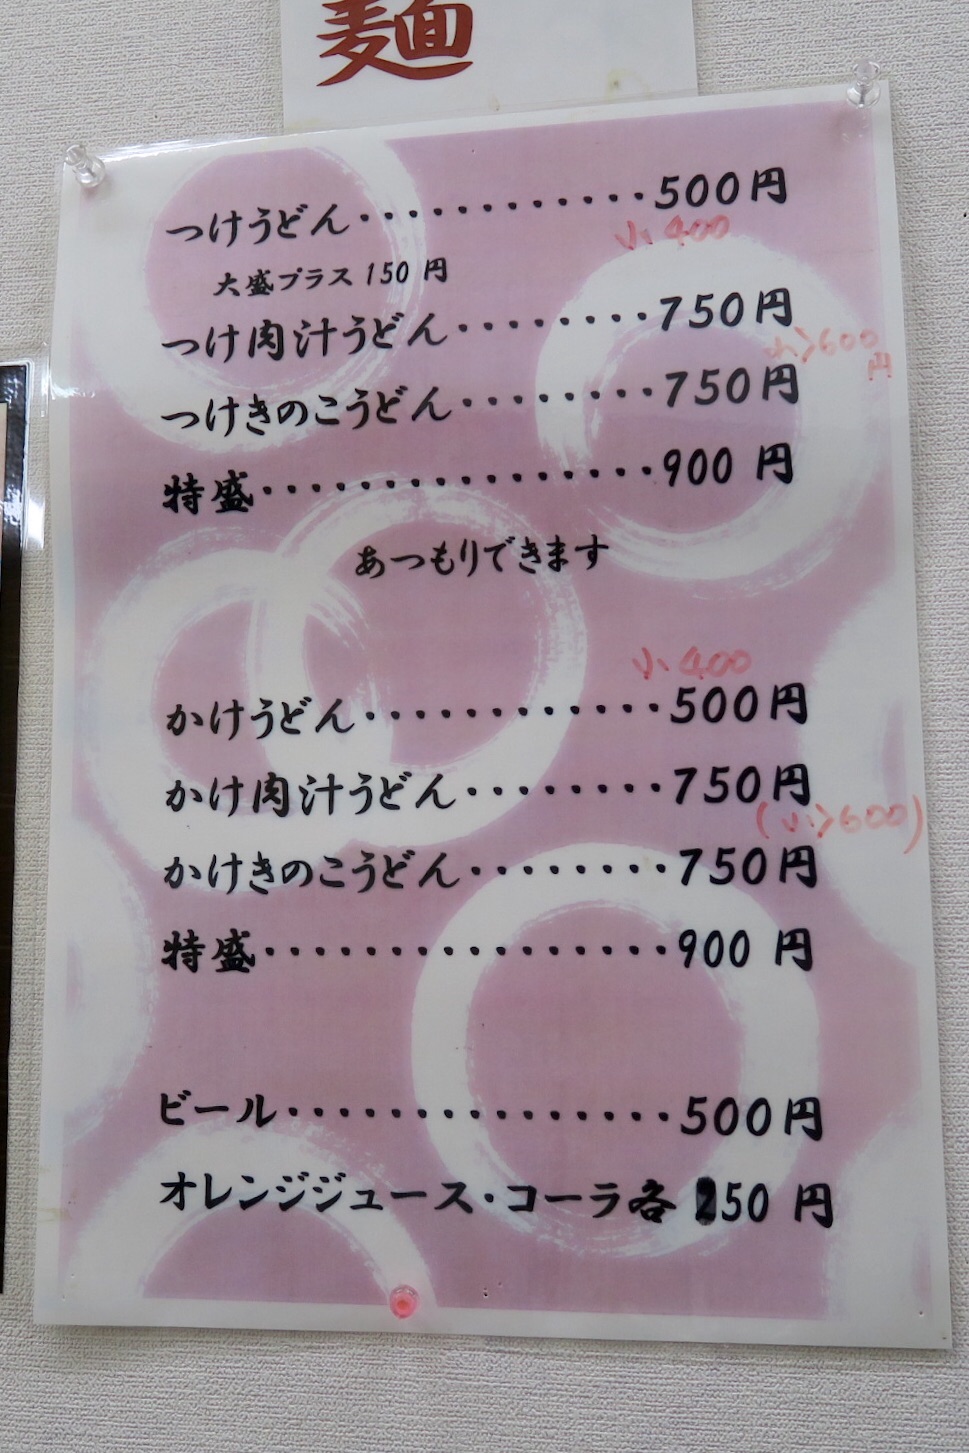 麺
つけうどん・・・・・・・・・・・・500円
小 400
大盛プラス 150 円
つけ肉汁うどん・・・・・・・・750円
小>600円
つけきのこうどん・・・・・・・・750円
特盛・・・・・・・・・・・・・・・・900 円
あつもりできます
小 400
かけうどん・・・・・・・・・・・・・500円
かけ肉汁うどん・・・・・・・・・750円
(小>600)
かけきのこうどん・・・・・・・・・750円
特盛・・・・・・・・・・・・・・・・900 円
ビール・・・・・・・・・・・・・・・・500円
オレンジジュース・コーラ各 250 円